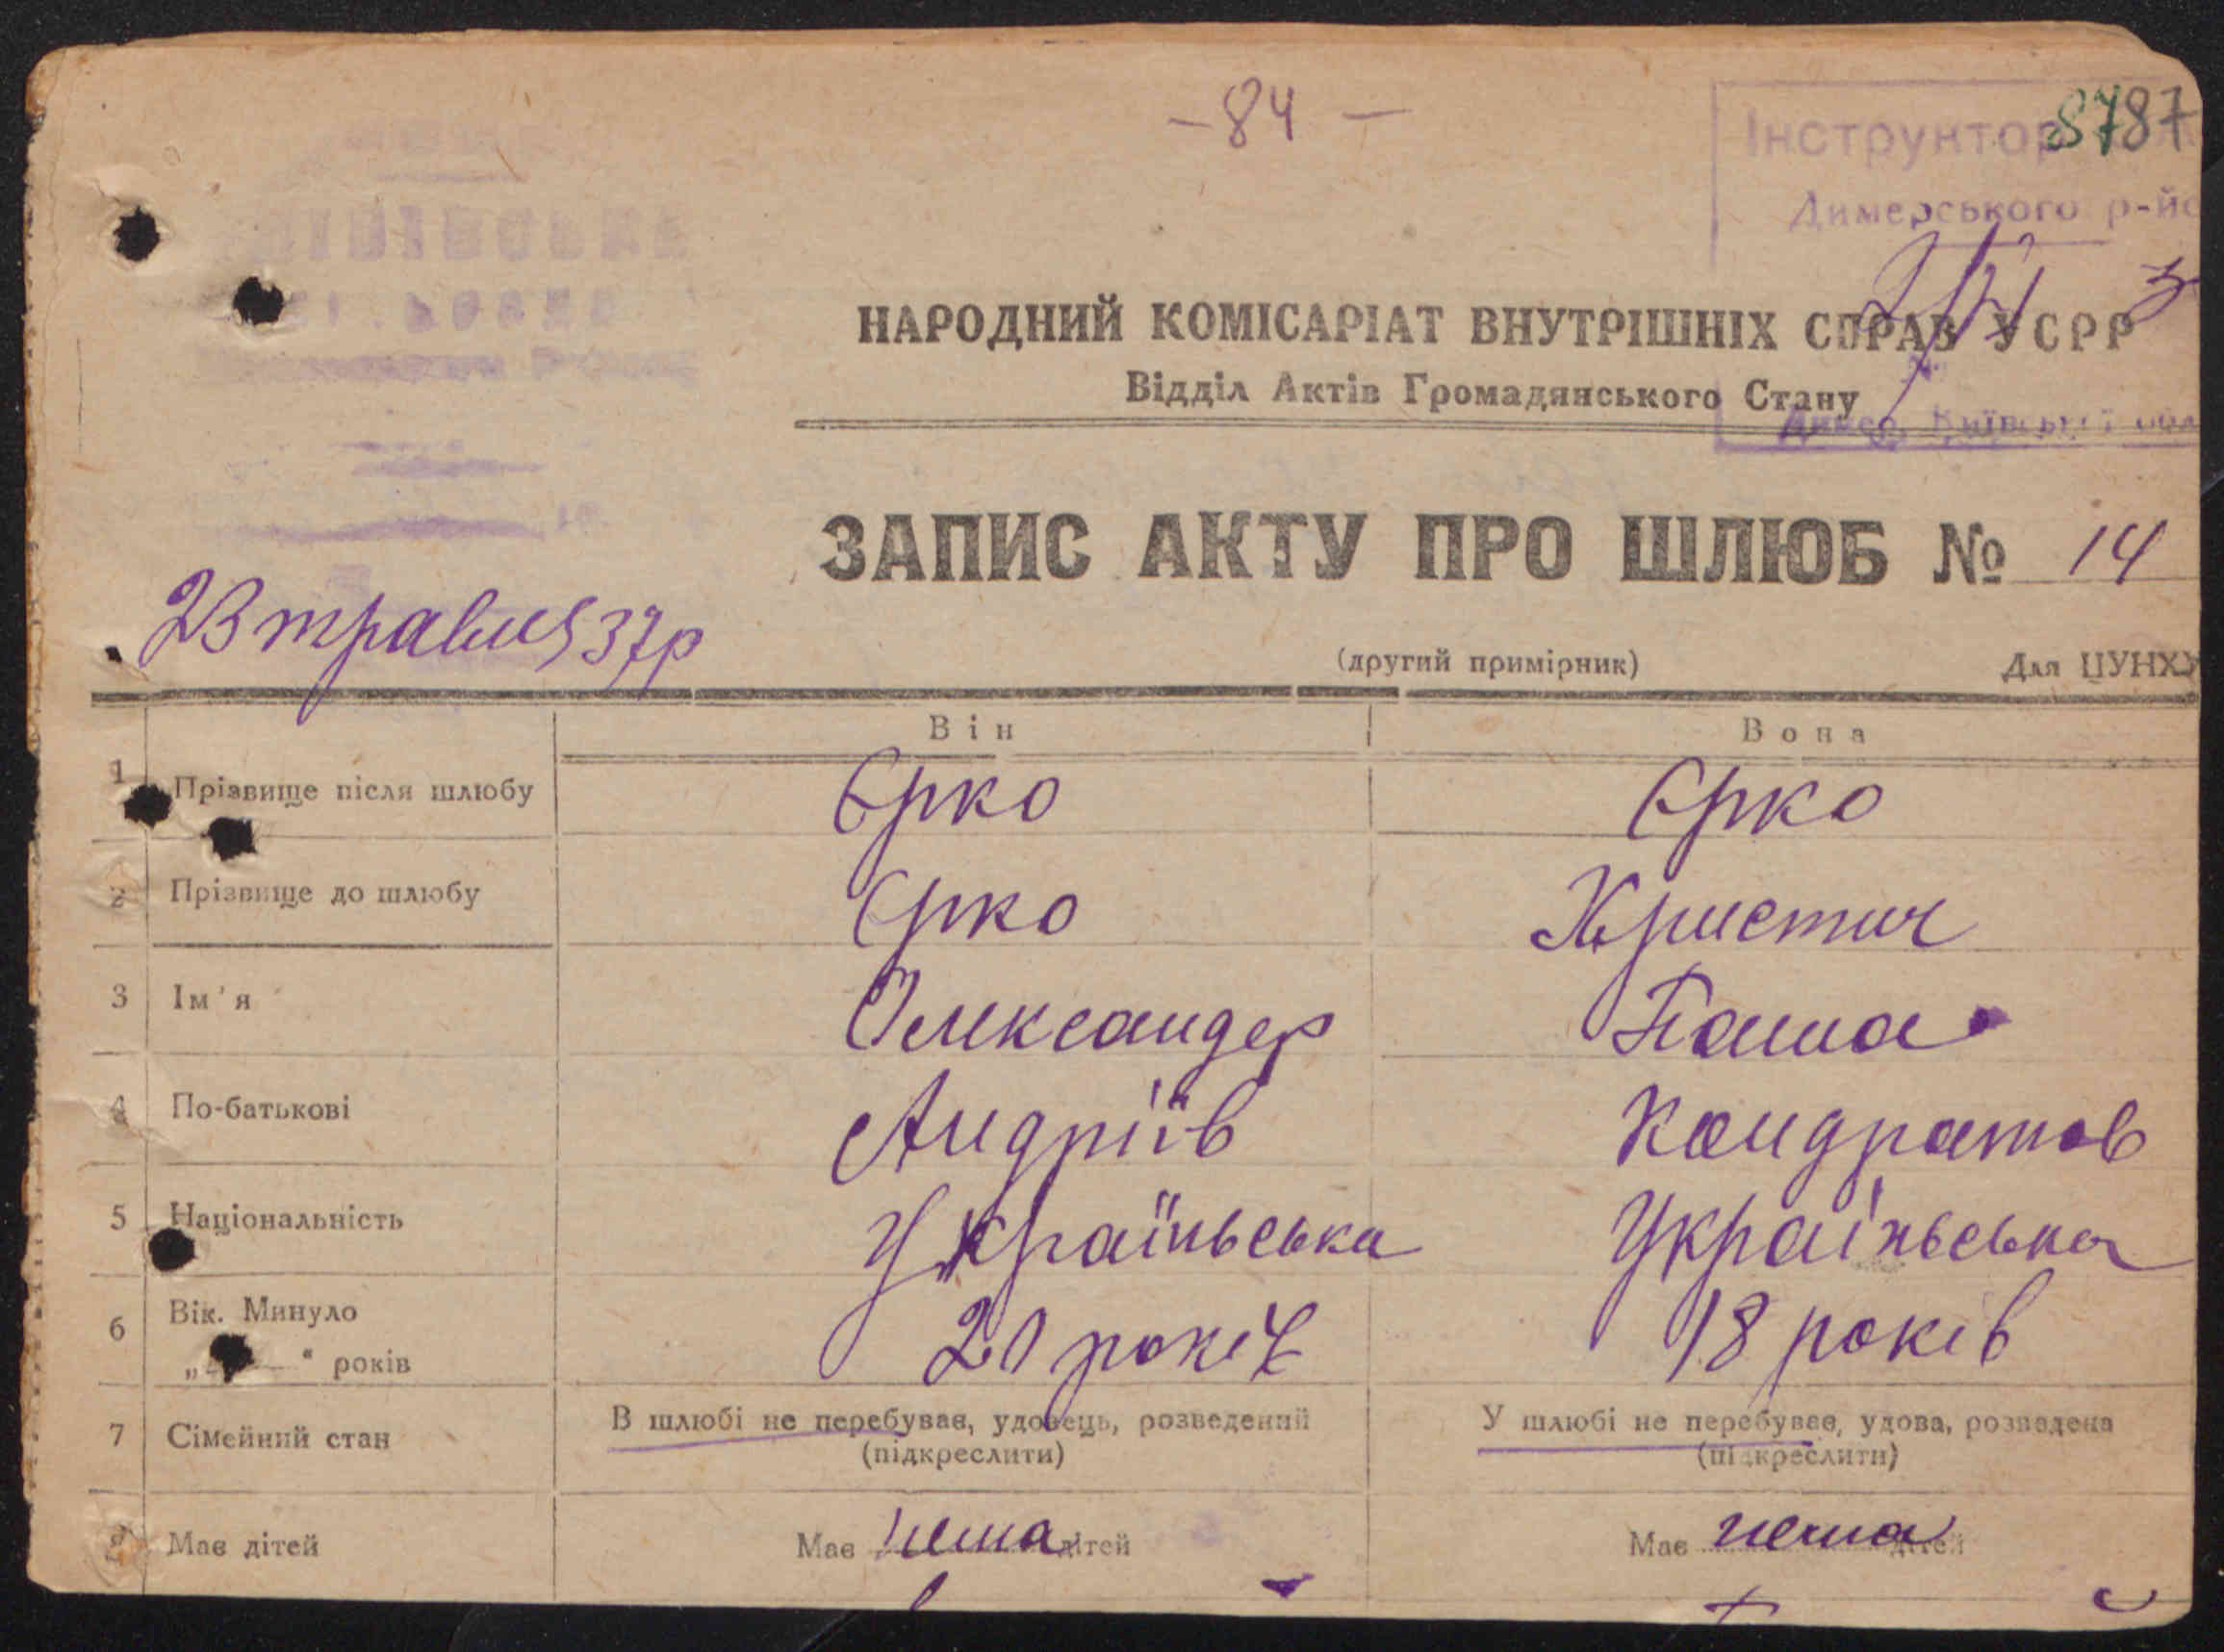 - 84 -
8787
Інструктор
Димерського р-йо
НАРОДНИЙ КОМІСАРІАТ ВНУТРІШНІХ СПРАВ УСРР
Відділ Актів Громадянського Стану
Димер, Київської обл
ЗАПИС АКТУ ПРО ШЛЮБ № 14
23 травня 37р
(другий примірник) Для ЦУНХУ
Він Вона
1 Прізвище після шлюбу Єрко Єрко
2 Прізвище до шлюбу Єрко Христич
3 Ім'я Олександер Паша
4 По-батькові Андріїв Кондратов
5 Національність Україньська Україньська
6 Вік. Минуло
„ “ років 20 років 18 років
7 Сімейний стан В шлюбі не перебував, удовець, розведений У шлюбі не перебуває, удова, розведена
(підкреслити) (підкреслити)
8 Має дітей Має нема дітей Має нема дітей